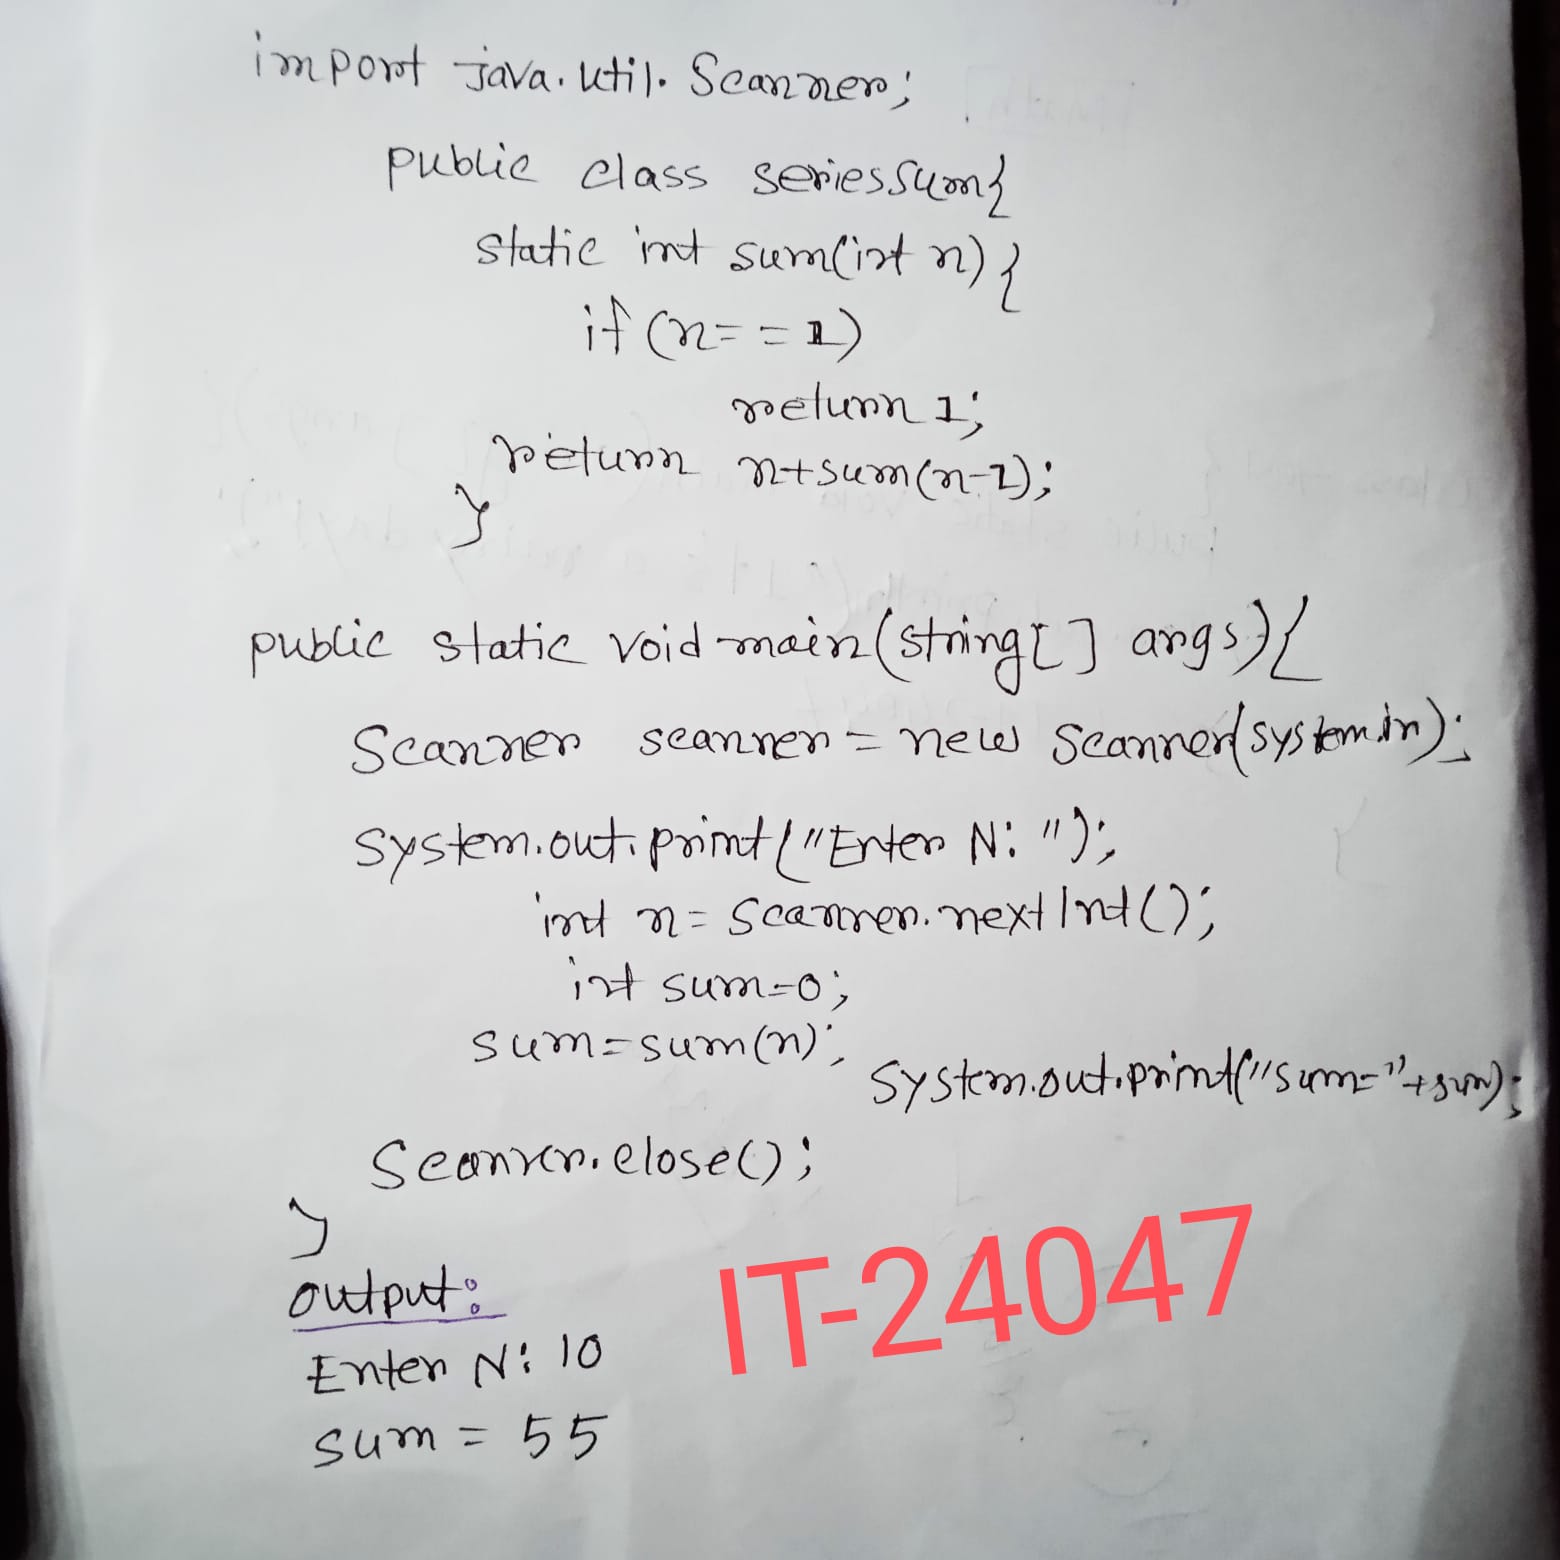 import java.util.Scanner;
public class seriessum{
static int sum(int n){
if (n==1)
return 1;
return n+sum(n-1);
}
public static void main(string[] args){
Scanner scanner = new Scanner(system.in);
system.out.print("Enter N: ");
int n= scanner.nextInt();
int sum=0;
sum=sum(n);
system.out.print("sum="+sum);
Scanner.close();
}
output:
Enter N: 10
sum = 55
IT-24047